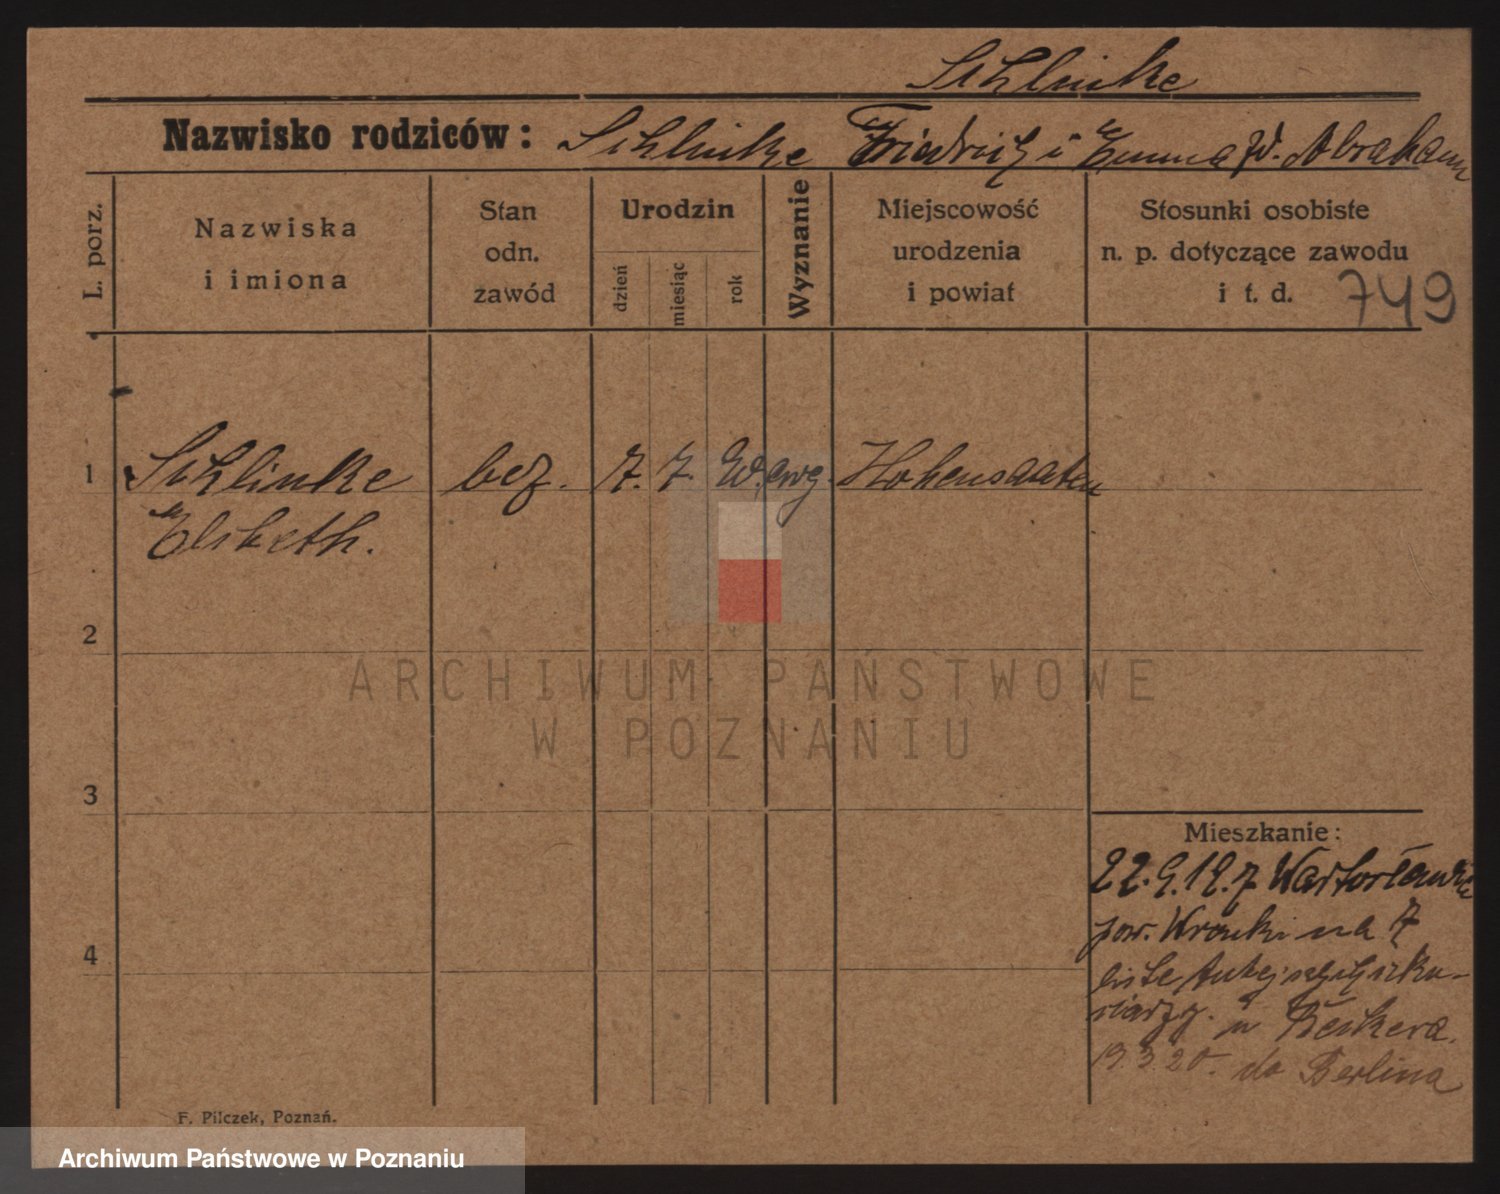 Schlinke
Nazwisko rodziców: Schlinke Friedrich i Emma zd. Abraham
L. porz.
Nazwiska
i imiona
Stan
odn.
zawód
Urodzin
dzień
miesiąc
rok
Wyznanie
Miejscowość
urodzenia
i powiat
Stosunki osobiste
n. p. dotyczące zawodu
i t. d.
749
1 Schlinke bez. 7. 7. ewg. Hohensaaten
Elsbeth.
2
ARCHIWUM PAŃSTWOWE
W POZNANIU
3
Mieszkanie:
22.9.19. z Wartosławia
pow. Wronki na
4
u Beikera.
19.3.20. do Berlina
F. Pilczek, Poznań.
Archiwum Państwowe w Poznaniu